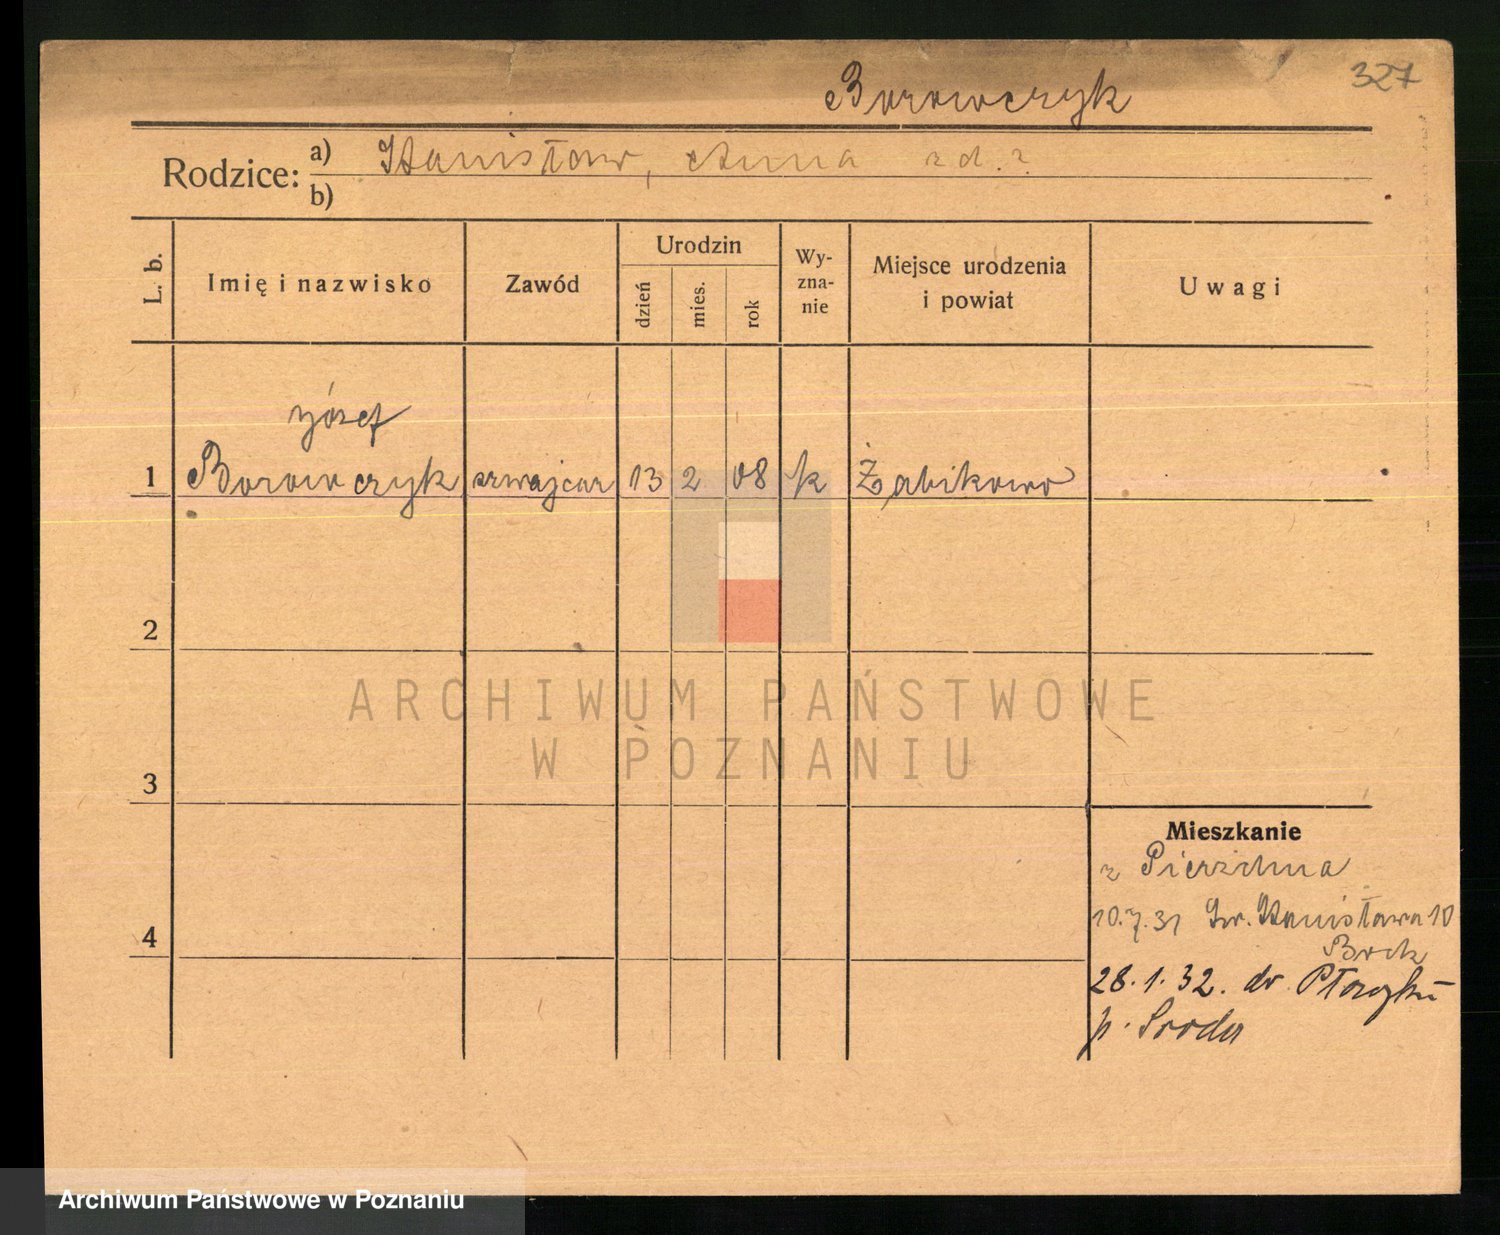 327
Borowczyk
Rodzice: a) Stanisław, Anna zd. ?
b)
L. b.
Imię i nazwisko
Zawód
Urodzin
dzień
mies.
rok
Wy-
zna-
nie
Miejsce urodzenia
i powiat
Uwagi
Józef
1 Borowczyk szwajcar 13 2 08 k Żabikowo
2
3
4
Mieszkanie
z Pierzchna
10.7.31 Św. Stanisława 10
28.1.32. do
p. Środa
ARCHIWUM PAŃSTWOWE
W POZNANIU
Archiwum Państwowe w Poznaniu